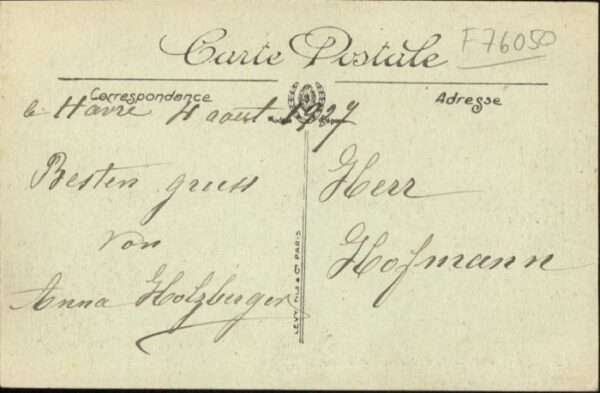 Carte Postale
F76050
Correspondance
Adresse
le Havre 4 aout 1927
Besten gruss
von
Anna Holzberger
Herr
Hofmann
LEVY FILS & Cie PARIS